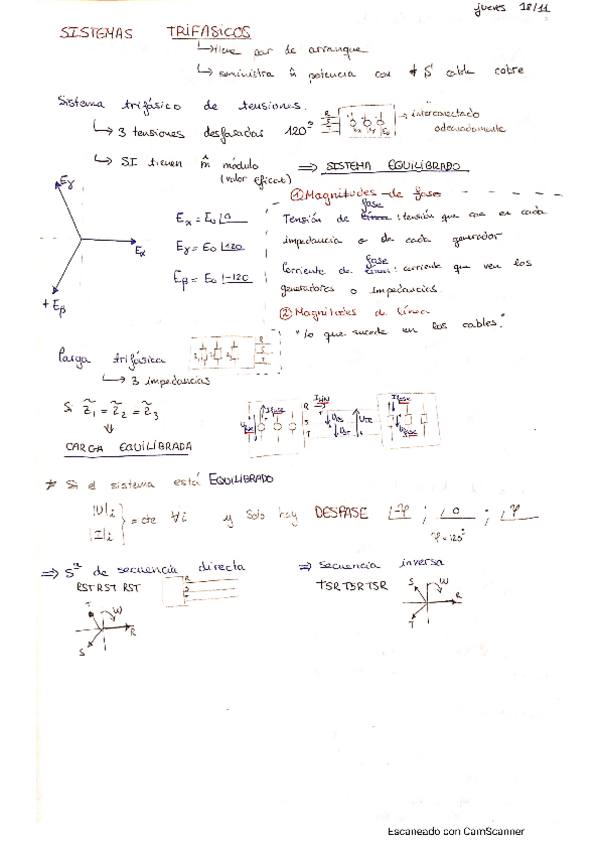 jueves 18/11
SISTEMAS TRIFASICOS
↳ tiene par de arranque
↳ suministra m̂ potencia con ≠ S cable cobre
Sistema trifásico de tensiones.
↳ 3 tensiones desfasadas 120°
R
S
T
→ interconectado
adecuadamente
↳ SI tienen m̂ módulo ⟹ SISTEMA EQUILIBRADO
(valor eficaz)
Eγ
Eα
+ Eβ
Eα = E₀ ∠0
Eγ = E₀ ∠120
Eβ = E₀ ∠-120
① Magnitudes de fase
fase
Tensión de línea: tensión que cae en cada
impedancia o de cada generador
fase
Corriente de línea: corriente que ven los
generadores o impedancias.
② Magnitudes de línea
"lo que sucede en los cables."
Carga trifásica
R
S
T
↳ 3 impedancias
Si Z̃₁ = Z̃₂ = Z̃₃
⇓
CARGA EQUILIBRADA
Ifase
Ufase
R
S
T
Ilínea
URS
UST
UTR
Ifase
Ufase
* Si el sistema está EQUILIBRADO
|U|i
|I|i
} = cte ∀i y solo hay DESFASE ∠-φ ; ∠0 ; ∠φ
φ = 120°
⟹ Sª de secuencia directa
RST RST RST
R
T
W
R
S
⟹ secuencia inversa
TSR TSR TSR
S
W
R
T
Escaneado con CamScanner